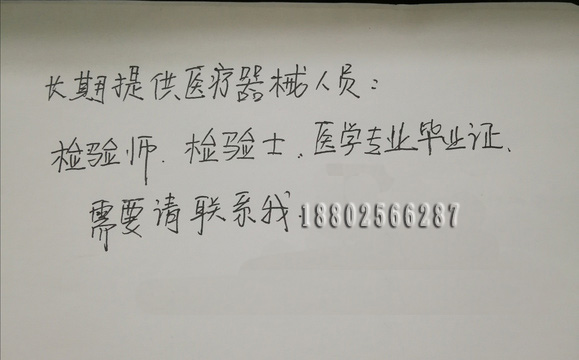 长期提供医疗器械人员：
检验师、检验士、医学专业毕业证、
需要请联系我18802566287